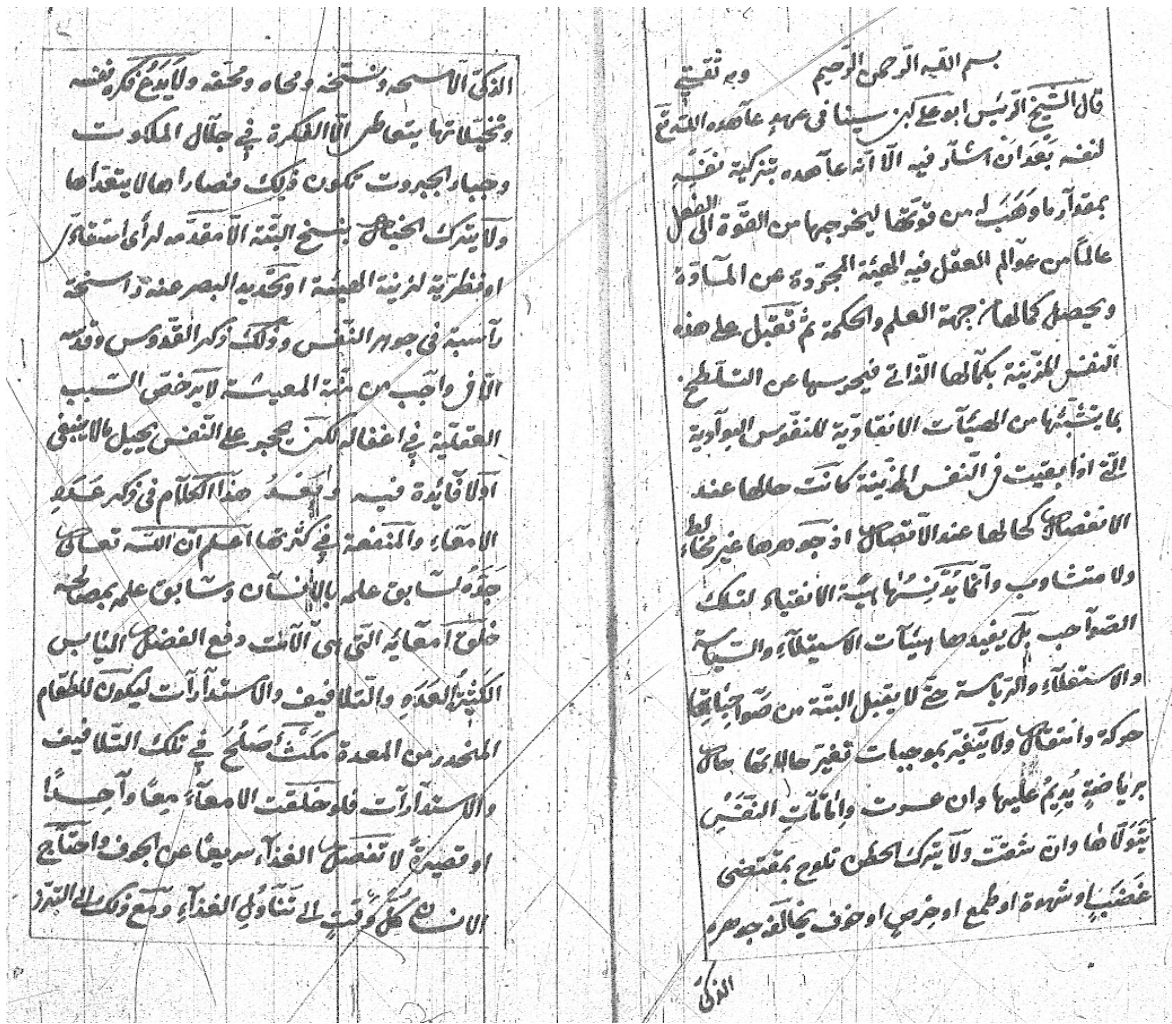 بسم الله الرحمن الرحيم وبه ثقتي
قال الشيخ الرئيس ابو علي ابن سينا فى عهدٍ عاهده الله تع
لنفسه بعد ان اشار فيه الا انه عاهده بتزكية نفسه
بمقدار ما وهب له من قوتها ليخرجها من القوة الى الفعل
عالماً من عوالم العقل فيه الهيئة المجردة عن المادة
ويحصل كمالها من جهة العلم والحكمة ثم تقبل على هذه
النفس المزينة بكمالها الذاتي فيحرسها عن التلطخ
بما يتشبثها من الهيئات الانقيادية للنفوس البوادية
التي اذا بقيت فى النفس المزينة كانت حالها عند
الانفصال كحالها عند الاتصال اذ جوهرها غير مخالط
ولا متشاوب وانما يدنسها هيئة الانقياد لتلك
الصواحب بل يفيدها هيئات الاستيلاء والسياسة
والاستعلاء والرياسة حتى لا يقبل البتة من صواحباتها
حركة وانتقال ولا يتغير بموجبات تغير حالاتها حال
برياضةٍ يُديمُ عليها وان عسرت واماتات النفس
يتولاها وان شقت ولا يترك الحظن تلوح بمقتضى
غضبٍ او شهوة او طمع او حرص او خوف يخالف جوهره
الذكى
الذكى الا سحه ونسخه ومحاه ومحقه ولا يدع فكره نفسه
وتخيلاتها يتعاطى الا الفكرة في جلال الملكوت
وجبار الجبروت تكون ذلك قصاراها لا يتعداها
ولا يترك الخيال يسنح البتة الا مقدمه لرأى
او نظرية لزينة الهيئة او تحديد البصر عنه راسخة
راسبة فى جوهر النفس وذلك ذكر القدوس وقدسه
الا فى واجب من مُنّة المعيشة لا يرخص السبب
العقلية في اغفاله لكن يحجر على النفس يحيل ما لا ينبغى
او لا فائدة فيه وابعد هذا الكلام فى ذكر عدد
الامعاء والمنفعة في كثرتها اعلم ان الله تعالى
جده لسابق علمه بالانسان وسابق علمه بمصالحه
خلق امعائه التى هى الآت دفع الفضل اليابس
الكثيرة العدد والتلافيف والاستدارات ليكون للطعام
المنحدر من المعدة مكث اصلح في تلك التلافيف
والاستدارات فلو خلقت الامعاء معاً واحداً
او قصيرة لا تفصل الغذاء سريعا عن الجوف واحتاج
الانسان كل وقت الى تناول الغذاء ومع ذلك الى التبرز